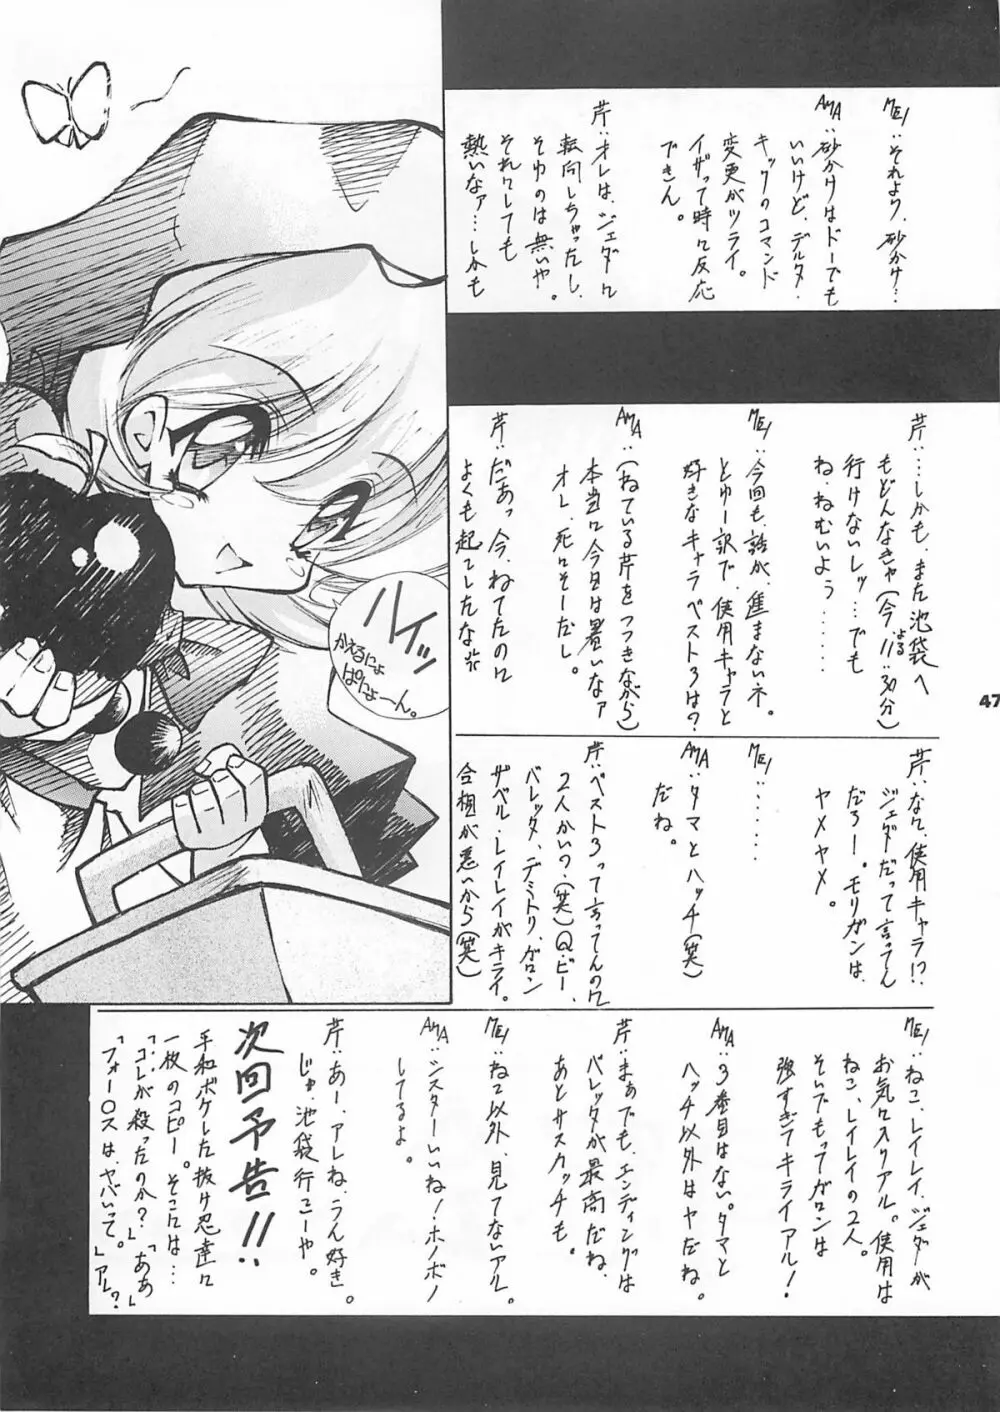 MEI:それより、砂かけ…
AMA:砂かけはドーでも
いいけど、デルタ・
キックのコマンド
変更がツライ。
イザって時に反応
できん。
芹:オレは、ジェダに
転向しちゃったし、
そゆのは無いや。
それにしても
熱いなァ…しかも
芹:…しかも、また池袋へ
もどんなきゃ(今11:30分)
よる
行けないしッ…でも
ね、ねむいよう……
MEI:今回も、話が、進まないネ。
とゆー訳で、使用キャラと
好きなキャラベスト3は?
AMA:(ねている芹をつつきながら)
本当に今日は暑いなァ
オレ、死にそーだし。
芹:だぁっ今、ねてたのに
よくも起こしたな
ハイッ
かえるにょ
ぱにょーん。
47
芹:なに、使用キャラ!?
ジェダだって言ってん
だろー。モリガンは、
ヤメヤメ。
MEI:……
AMA:タマとハッチ(笑)
だね。
芹:ベスト3って言ってんのに
2人かい?(笑)Q・ビー、
バレッタ、デミトリ、ガロン
ザベル・レイレイがキライ。
合相が悪いから(笑)
MEI:ねこ、レイレイ、ジェダが
お気に入リアル。使用は
ねこ、レイレイの2人。
そいでもってガロンは
強すぎてキライアル!
AMA:3番目はない。タマと
ハッチ以外はヤだね。
芹:まぁでも、エンディングは
バレッタが最高だね、
あとサスカッチも。
MEI:ねこ以外、見てないアル。
AMA:シスターいいね!ホノボノ
してるよ。
芹:あー、アレね、うん好き。
じゃ、池袋行こーや。
次回予告!!
平和ボケした抜け忍達に
一枚のコピー。そこには…
「コレが殺ったのか?」「ああ」
「フォー○スは、ヤバいって。」アル?